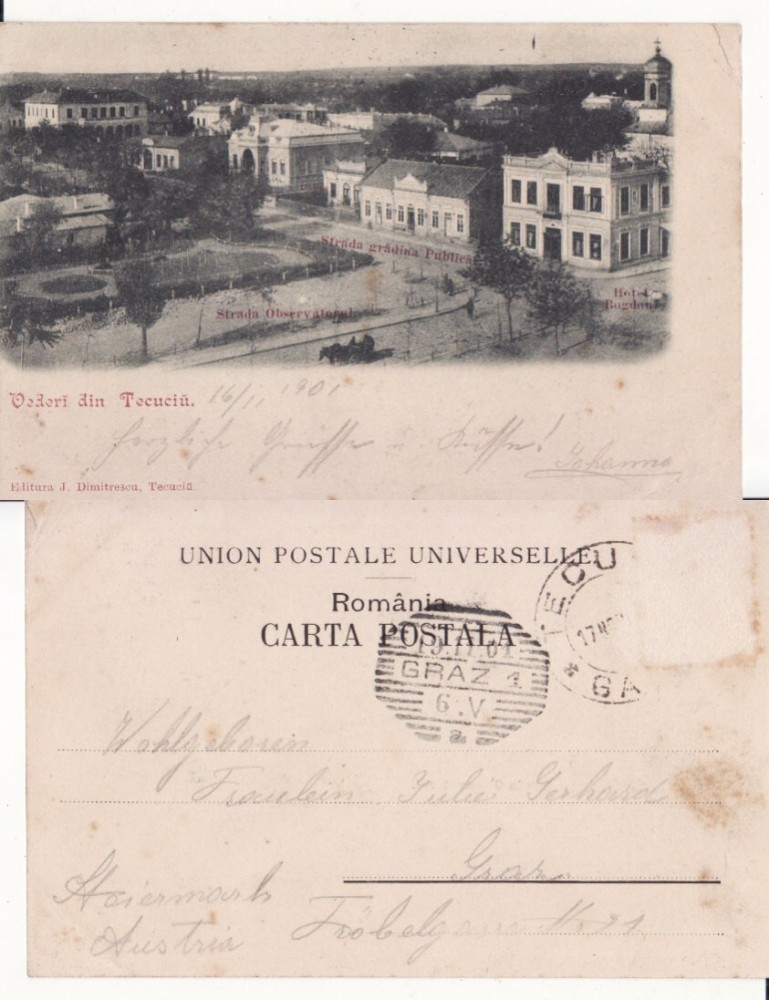 Strada grădina Publică
Strada Observatorul
Hotel
Bogdan
Vederĭ din Tecuciŭ.
16/11 1901
Herzliche Grüsse u. Küsse!
Johanna
Editura J. Dimitrescu, Tecuciŭ
UNION POSTALE UNIVERSELLE
România
CARTA POSTALA
TECU
17 NO
* GA
19.11.01
GRAZ 1
6.V
a
Wohlgeboren
Fräulein Julie Gerhard
Graz
Steiermark
Fröbelgasse Nr 21
Austria